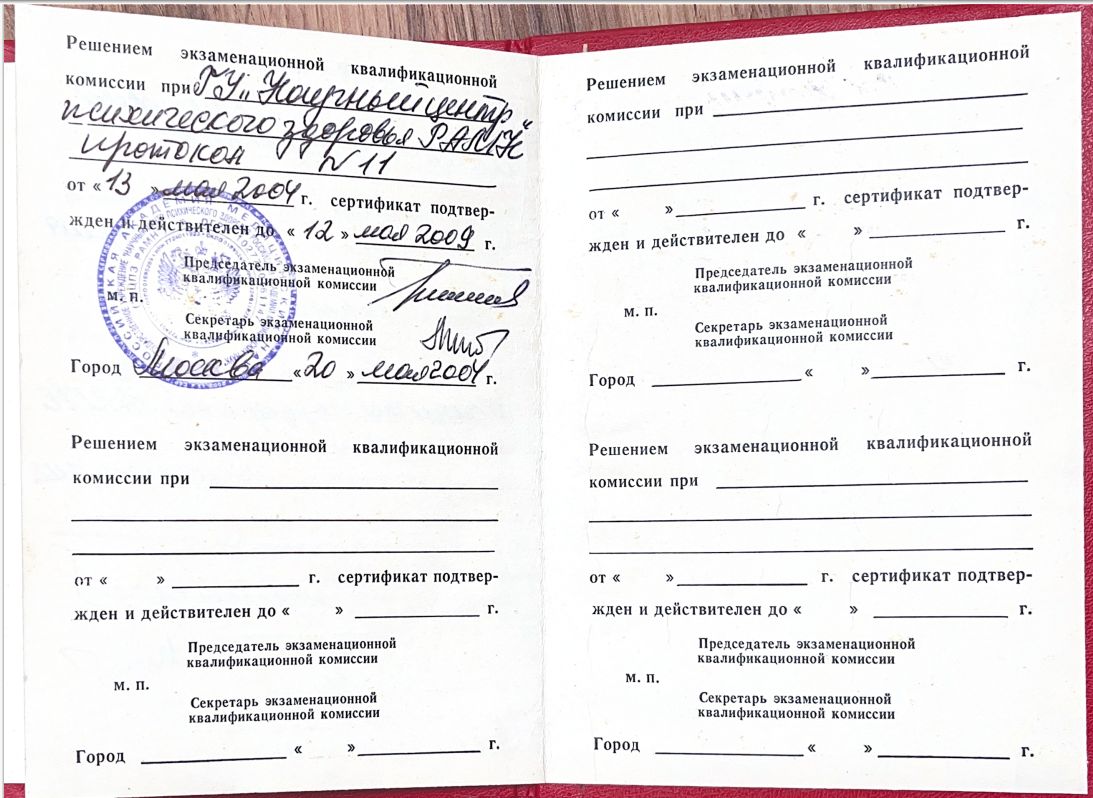 Решением экзаменационной квалификационной
комиссии при ГУ „Научный центр
психического здоровья РАМН“
протокол N 11
от «13 » мая 2004 г. сертификат подтвер-
жден и действителен до «12 » мая 2009 г.
Председатель экзаменационной
квалификационной комиссии
м. п.
Секретарь экзаменационной
квалификационной комиссии
Город Москва «20 » мая 2004 г.
Решением экзаменационной квалификационной
комиссии при
от « » г. сертификат подтвер-
жден и действителен до « » г.
Председатель экзаменационной
квалификационной комиссии
м. п.
Секретарь экзаменационной
квалификационной комиссии
Город « » г.
Решением экзаменационной квалификационной
комиссии при
от « » г. сертификат подтвер-
жден и действителен до « » г.
Председатель экзаменационной
квалификационной комиссии
м. п.
Секретарь экзаменационной
квалификационной комиссии
Город « » г.
Решением экзаменационной квалификационной
комиссии при
от « » г. сертификат подтвер-
жден и действителен до « » г.
Председатель экзаменационной
квалификационной комиссии
м. п.
Секретарь экзаменационной
квалификационной комиссии
Город « » г.